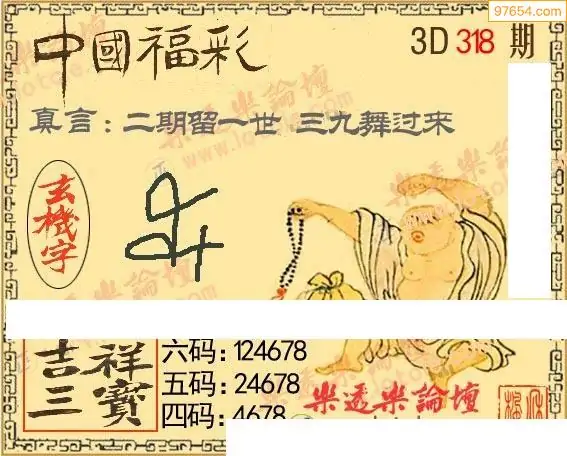 97654.com
中國福彩
3D 318 期
真言:二期留一世 三九舞过来
玄機字
吉祥
三寶
六码:124678
五码:24678
四码:4678
樂透樂論壇